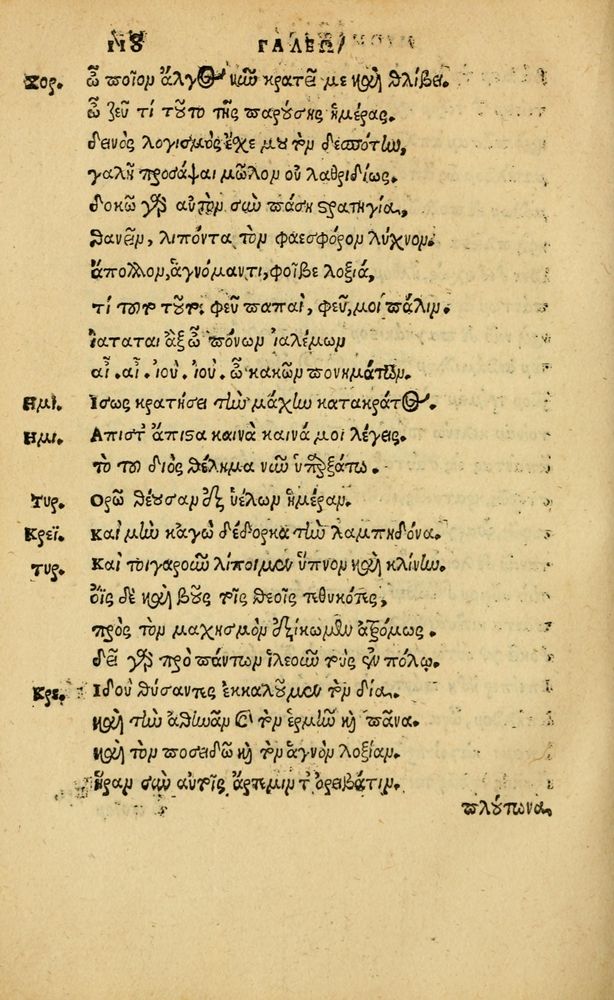 ΓΑΛΕΩ
Χορ. ὦ ποῖον ἄλγος νῦν κρατεῖ με καὶ θλίβει.
ὦ ζεῦ τί τοῦτο τῆς παρούσης ἡμέρας.
δεινὸς λογισμὸς ἔχει μου τὸν δεσπότην,
γαλῆ προσάψαι μῶλον οὐ λαθριδίως.
δοκῶ γὰρ αὐτὸν σὺν πάσῃ στρατηγίᾳ,
θανεῖν, λιπόντα τὸν φαεσφόρον λύχνον.
ἄπολλον, ἁγνόμαντι, φοῖβε λοξία,
τί ποτε τοῦτο; φεῦ παπαὶ, φεῦ, μοι πάλιν.
ἰαταται ἀξῶ πόνων ἰαλέμων
αἶ. αἶ. ἰού. ἰού. ὦ κακῶν πονημάτων.
Ημι. Ισως κρατήσει τὴν μάχην κατακράτος.
Ημι. Απιστ ἄπιστα καινὰ καινά μοι λέγεις.
τὸ τοῦ διὸς θέλημα νῦν ὑπαρξάτω.
Τυρ. Ορῶ θέουσαν ἐξ ὑέλων ἡμέραν.
Κρεῖ. Καὶ μὴν κἀγὼ δέδορκα τὴν λαμπηδόνα.
Τυρ. Καὶ τοιγαροῦν λίποιμεν ὕπνον καὶ κλίνην.
ὄϊς δὲ καὶ βοῦς τοῖς θεοῖς τεθυκότες,
πρὸς τὸν μαχησμὸν ἐξίκωμεν ἀξόμως.
δεῖ γὰρ πρὸ πάντων ἱλεοῦν τοὺς ἐν πόλῳ.
Κρε. Ιδοὺ θύσαντες ἐκκαλοῦμεν τὸν δία.
καὶ τὴν ἀθηνᾶν καὶ τὸν ἑρμῆν καὶ πᾶνα.
καὶ τὸν ποσειδῶ καὶ τὸν ἁγνὸν λοξίαν.
ἥραν σὺν αὐτοῖς ἄρτεμιν τ' ὀρειβάτιν.
πλούτωνα,